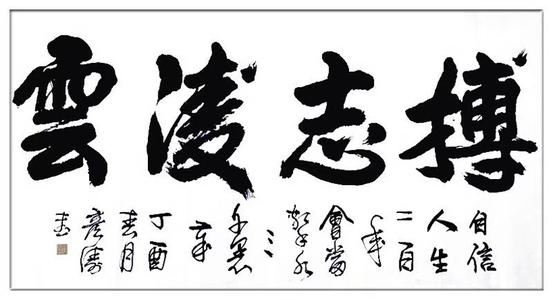 搏志淩雲
自信
人生
二百
年
會當
擊水
三
千里
丁酉
春月
彦濤
書